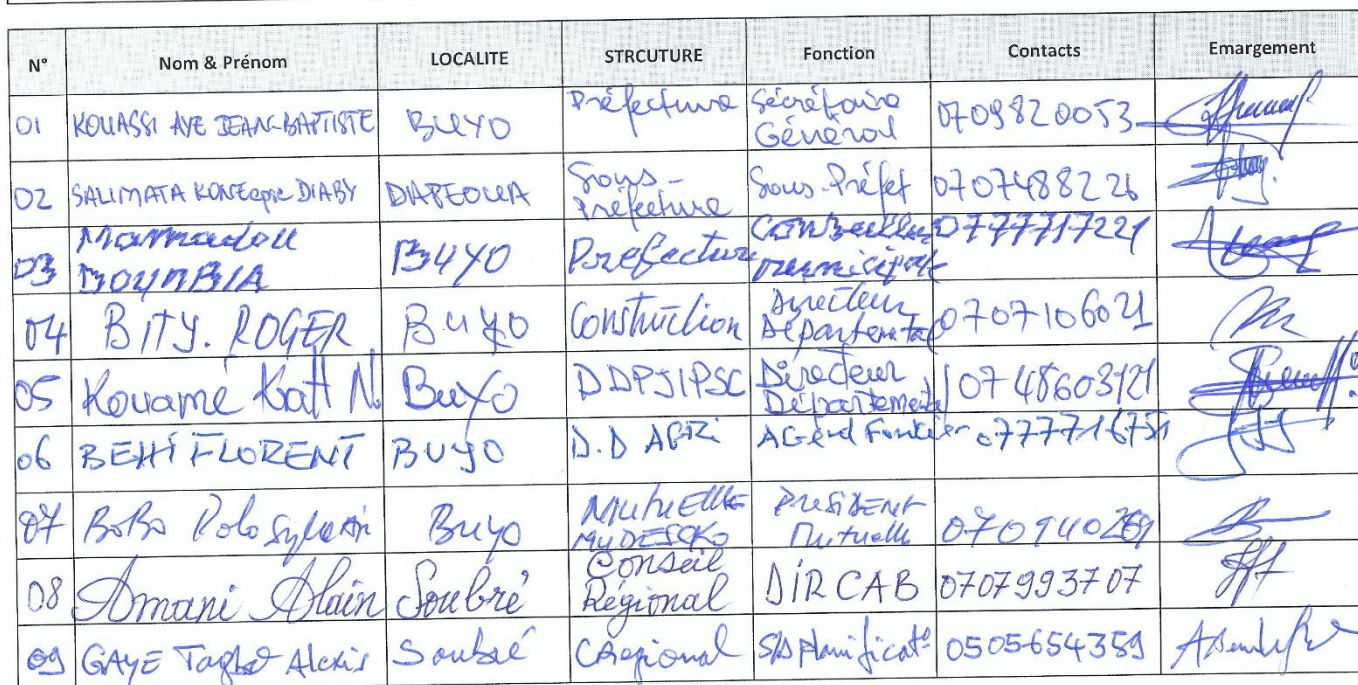 N° Nom & Prénom LOCALITE STRCUTURE Fonction Contacts Emargement
01 KOUASSI AYE JEAN-BAPTISTE BUYO Préfecture Sécrétaire Général 0709820053
02 SALIMATA KONE epse DIABY DAPEOUA Sous-Préfecture Sous-Préfet 0707488226
03 Mamadou DOUMBIA BUYO Préfecture Conseiller municipal 0777717221
04 BITY. ROGER BUYO Construction Directeur Départemental 0707106021
05 Kouamé Katt N. Buyo DDPJIPSC Directeur Départemental 0748603121
06 BEHI FLORENT BUYO D.D AGRI AGent Foncier
07 BoBo Polo Sylvain Buyo MUTUELLE MUDESCKO PRESIDENT Mutuelle
08 Amani Alain Soubré Conseil Régional DIRCAB 0707993707
09 GAYE Alexis Soubré CRegional S/D Planificat° 0505654359